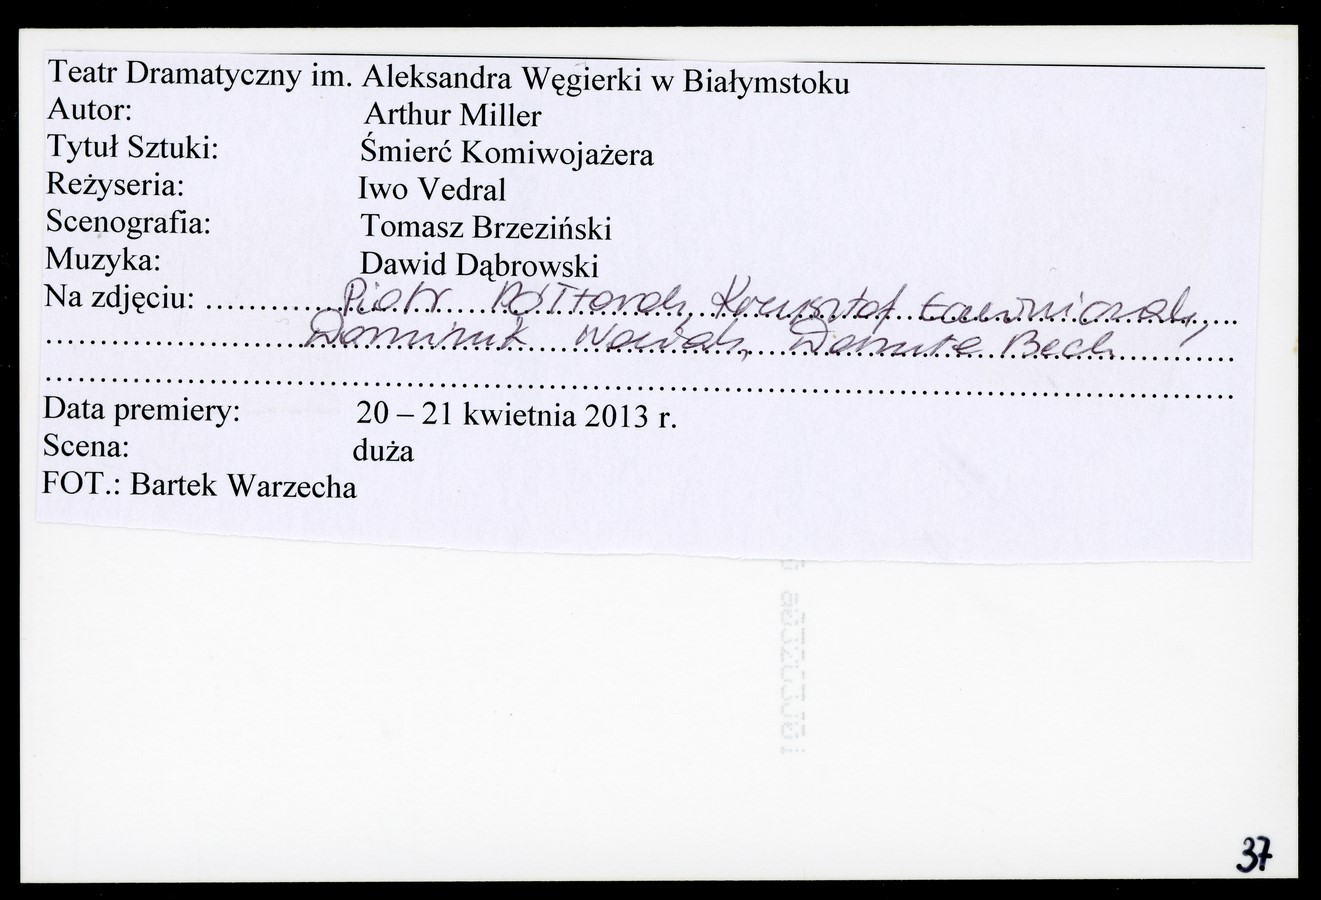 Teatr Dramatyczny im. Aleksandra Węgierki w Białymstoku
Autor: Arthur Miller
Tytuł Sztuki: Śmierć Komiwojażera
Reżyseria: Iwo Vedral
Scenografia: Tomasz Brzeziński
Muzyka: Dawid Dąbrowski
Na zdjęciu: Piotr Półtorak, Krzysztof Ławniczak,
Dominik Nowak, Danuta Bach
Data premiery: 20 – 21 kwietnia 2013 r.
Scena: duża
FOT.: Bartek Warzecha
37